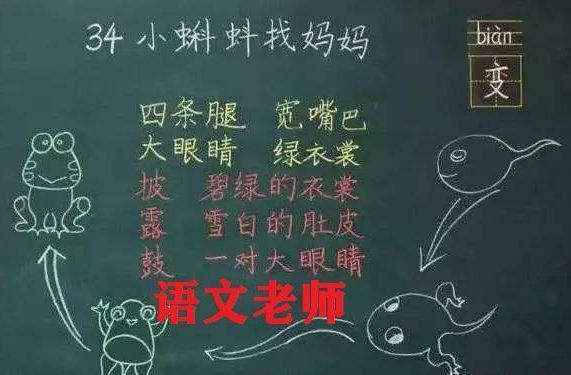 34 小蝌蚪找妈妈
biàn
变
四条腿 宽嘴巴
大眼睛 绿衣裳
披 碧绿的衣裳
露 雪白的肚皮
鼓 一对大眼睛
语文老师